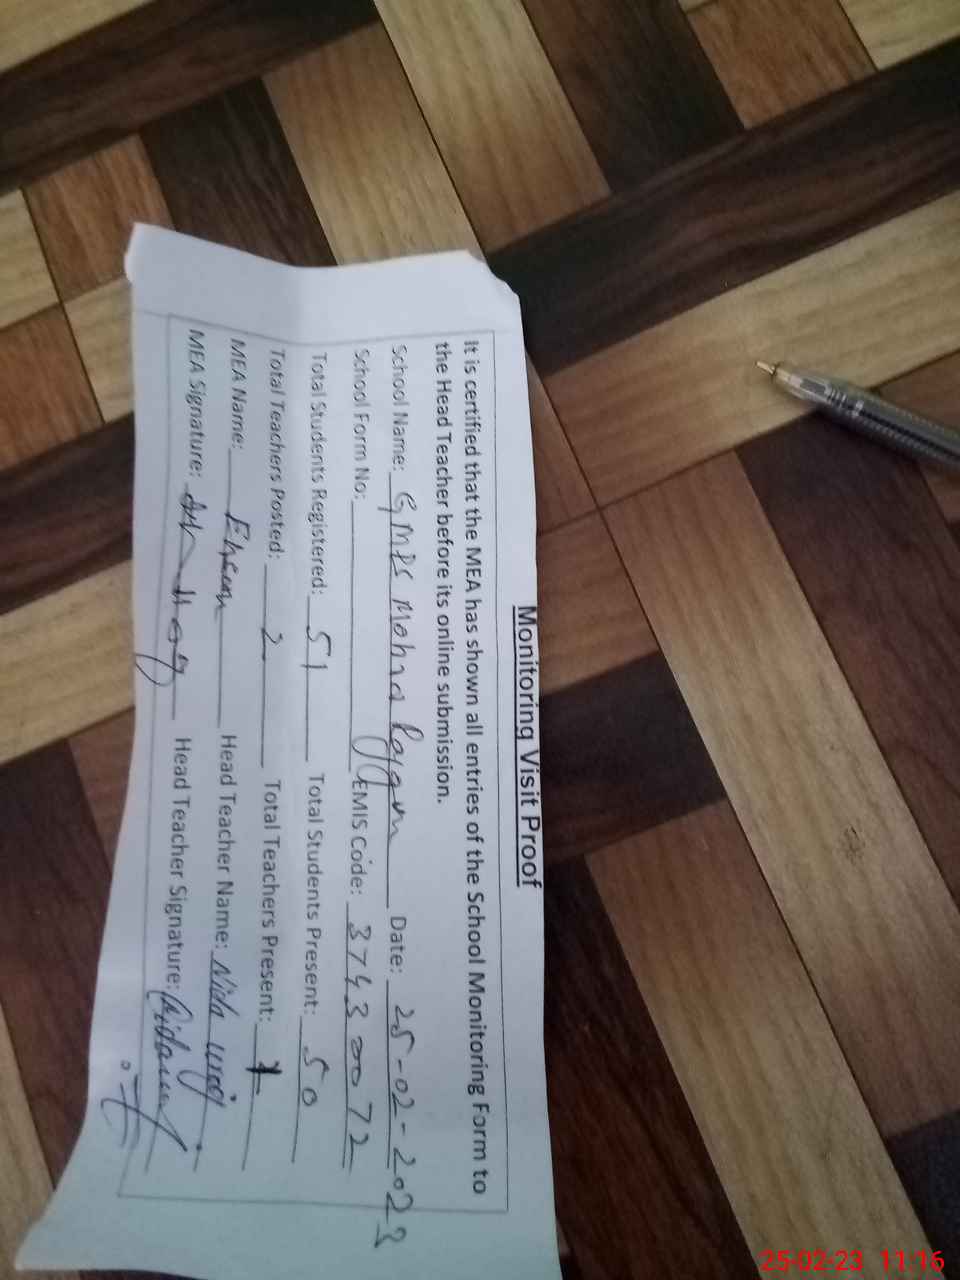 Monitoring Visit Proof
It is certified that the MEA has shown all entries of the School Monitoring Form to
the Head Teacher before its online submission.
School Name: GMPS Mohra Date: 25-02-2023
School Form No: EMIS Code: 37430072
Total Students Registered: 51 Total Students Present: 50
Total Teachers Posted: 2 Total Teachers Present:
MEA Name: Ehsan Head Teacher Name: Nida
MEA Signature: Head Teacher Signature:
25-02-23 11:16